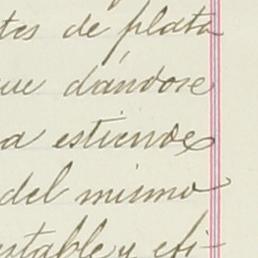 tes de plata
ue dándose
a estiende
del mismo
estable y efi-